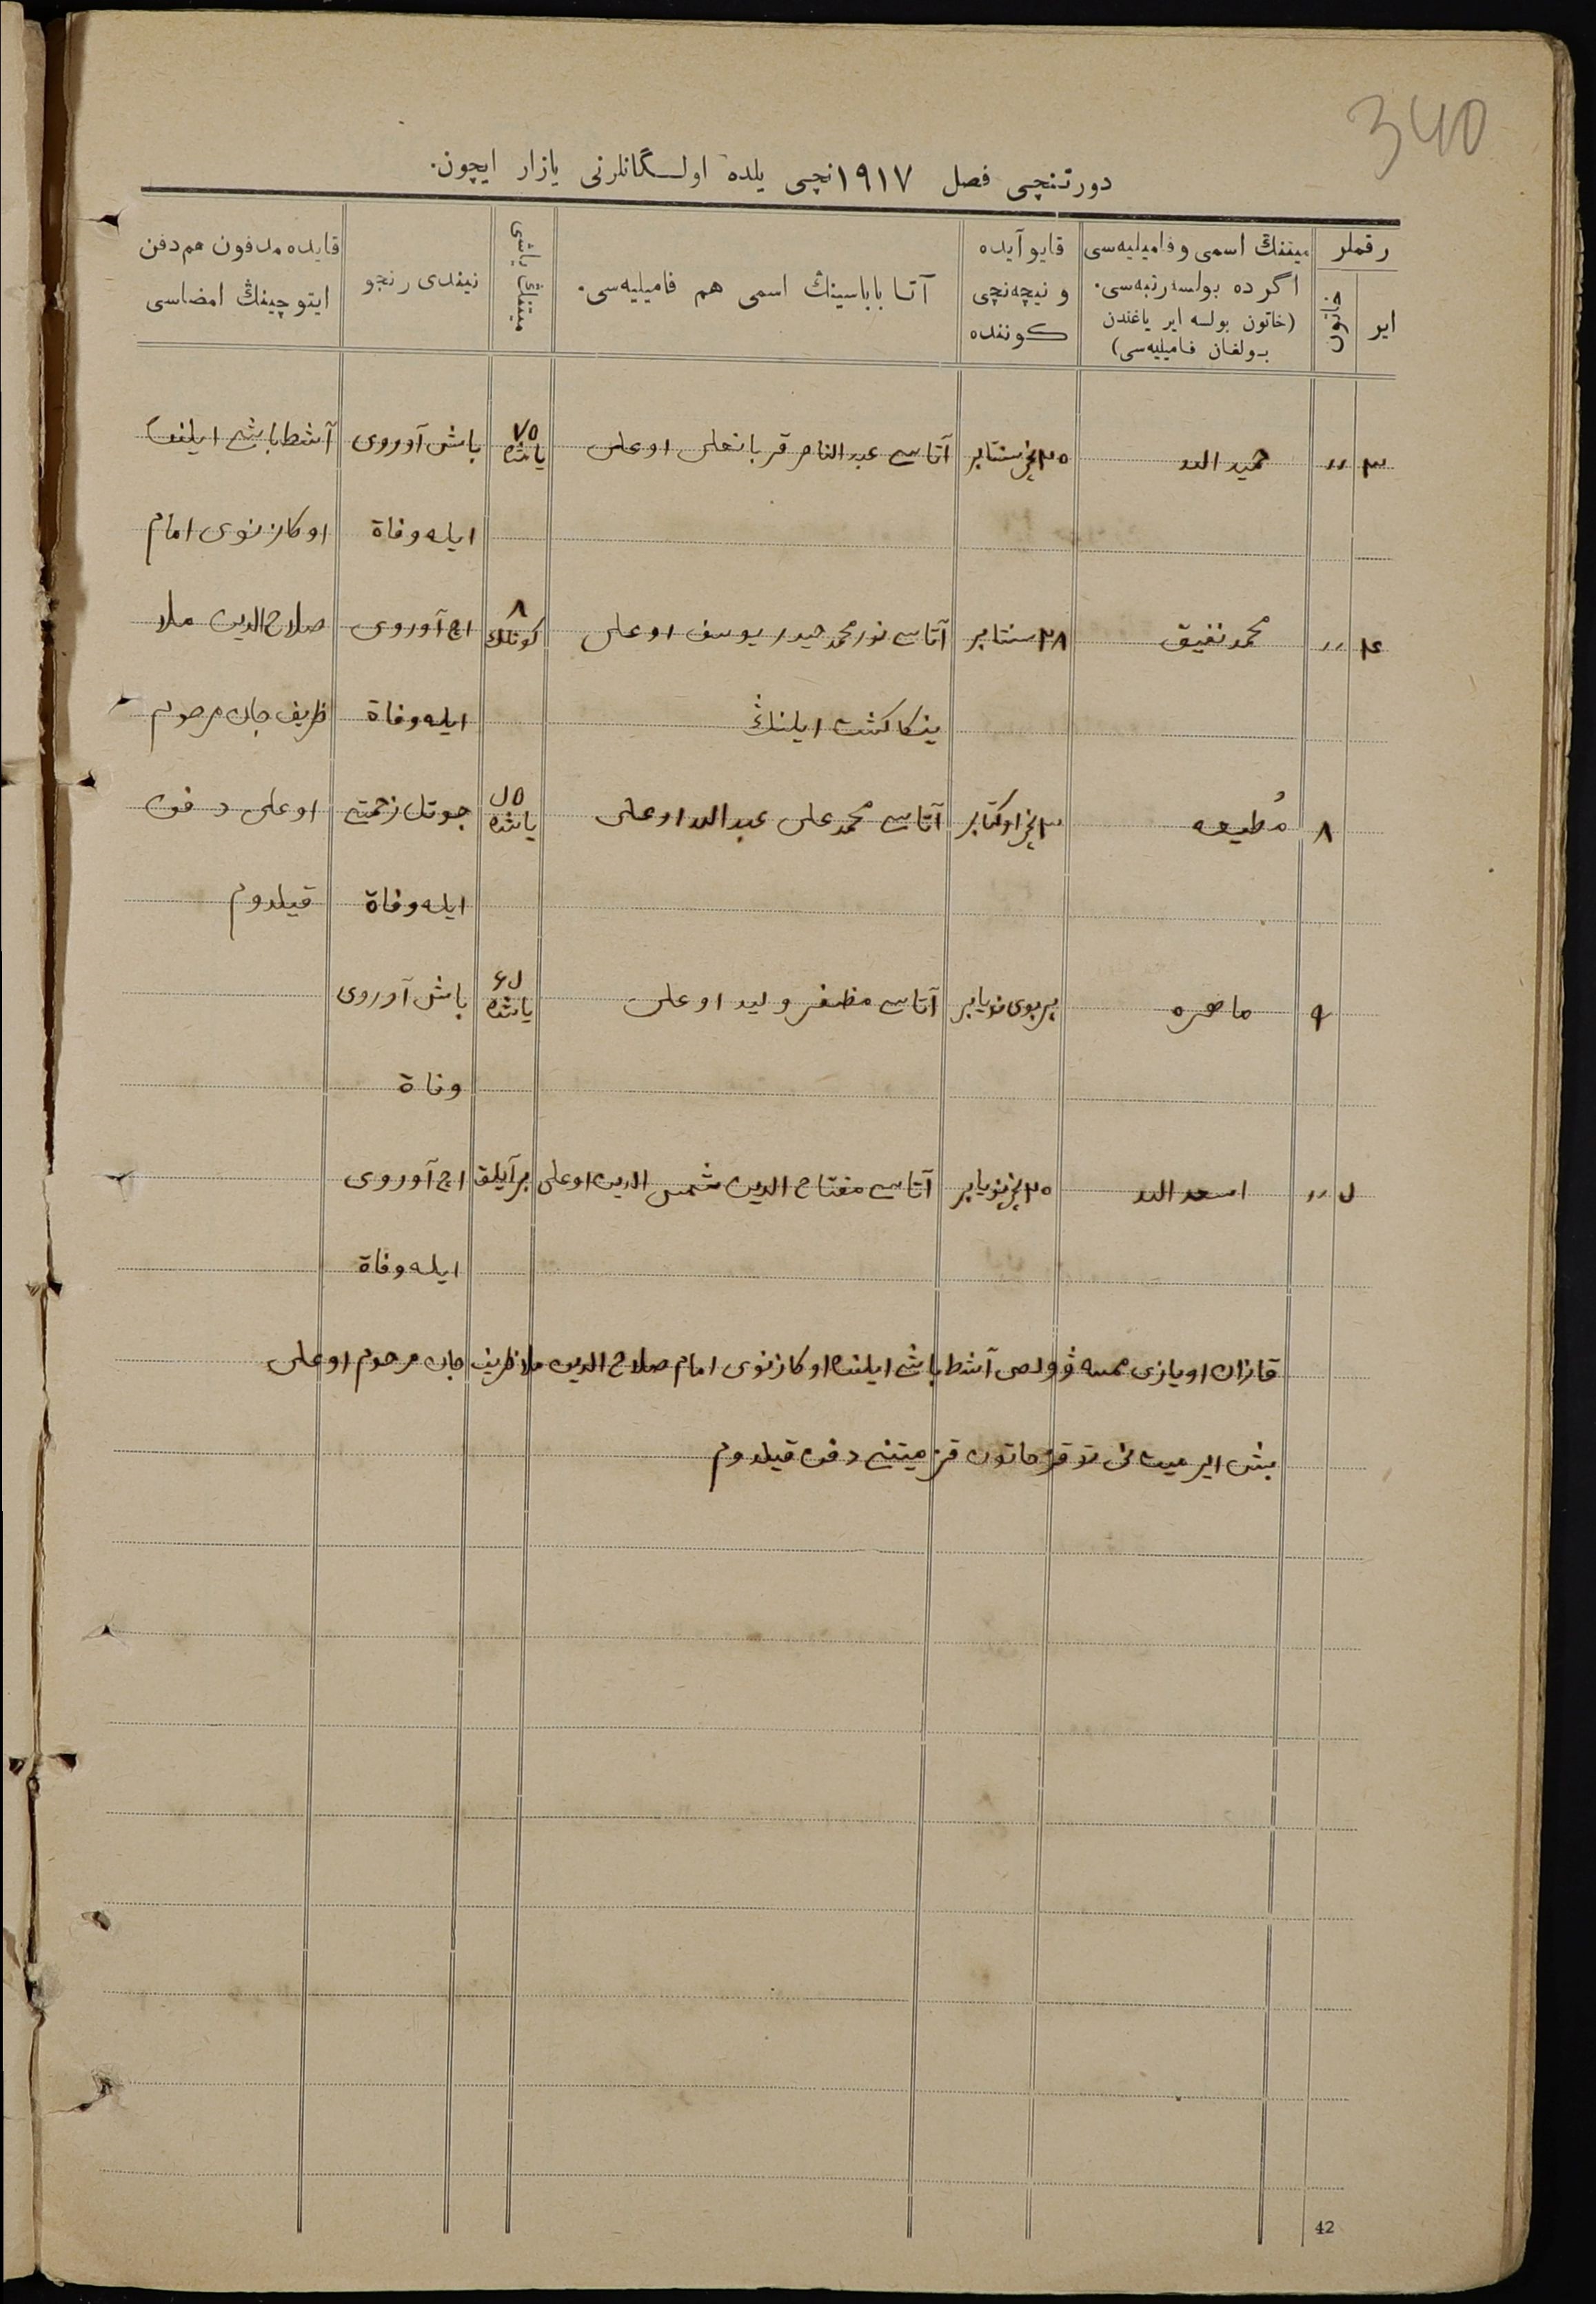 340
دورتنچی فصل ١٩١٧ نچی یلده اولـگانلرنی یازار ایچون.
رقملر
ایر
خاتون
میتنڭ اسمی و فامیلیه‌سی
اگر ده بولسه رتبه‌سی.
(خاتون بولسه ایر یاغندن
بـولغان فـامیلیه‌سی)
قایو آیده
و نیچه‌نچی
كوننده
آتـا باباسینڭ اسمی هم فامیلیه‌سی.
میتنڭ یاشی
نیندی رنجو
قایده مدفون هم دفن
ایتو چینڭ امضاسی
٣ " حمید الله ٢٥نچی سنتابر آتاسی عبد الناصر قربانعلی اوغلی ٧٥ یاشده باش آوروی آشط باشی ایلنڭ
ایله وفاة اوكازنوی امام
٤ " محمد نفیق ٢٨ سنتابر آتاسی نور محمد حیدر یوسف اوغلی ٨ كونلك اچ آوروی صلاح الدین ملا
ایلنڭ ایله وفاة ظریف جان مرحوم
٨ مُطیعه ٣نچی اوكتابر آتاسی محمد علی عبد الله اوغلی ٥٥ یاشده یوتل زحمتی اوغلی دفن
ایله وفاة قیلدوم
٩ ماهره پربوی نویابر آتاسی مظفر ولید اوغلی یاشده باش آوروی
وفاة
" اسعد الله ٢٥نچی نویابر آتاسی مفتاح الدین شمس الدین اوغلی بر آیلق اچ آوروی
ایله وفاة
قازان اویازی وولص آشط باشی ایلنڭ اوكازنوی امام صلاح الدین ملا ظریف جان مرحوم اوغلی
بش ایر میت نی توقز خاتون قز میتنی دفن قیلدوم
42